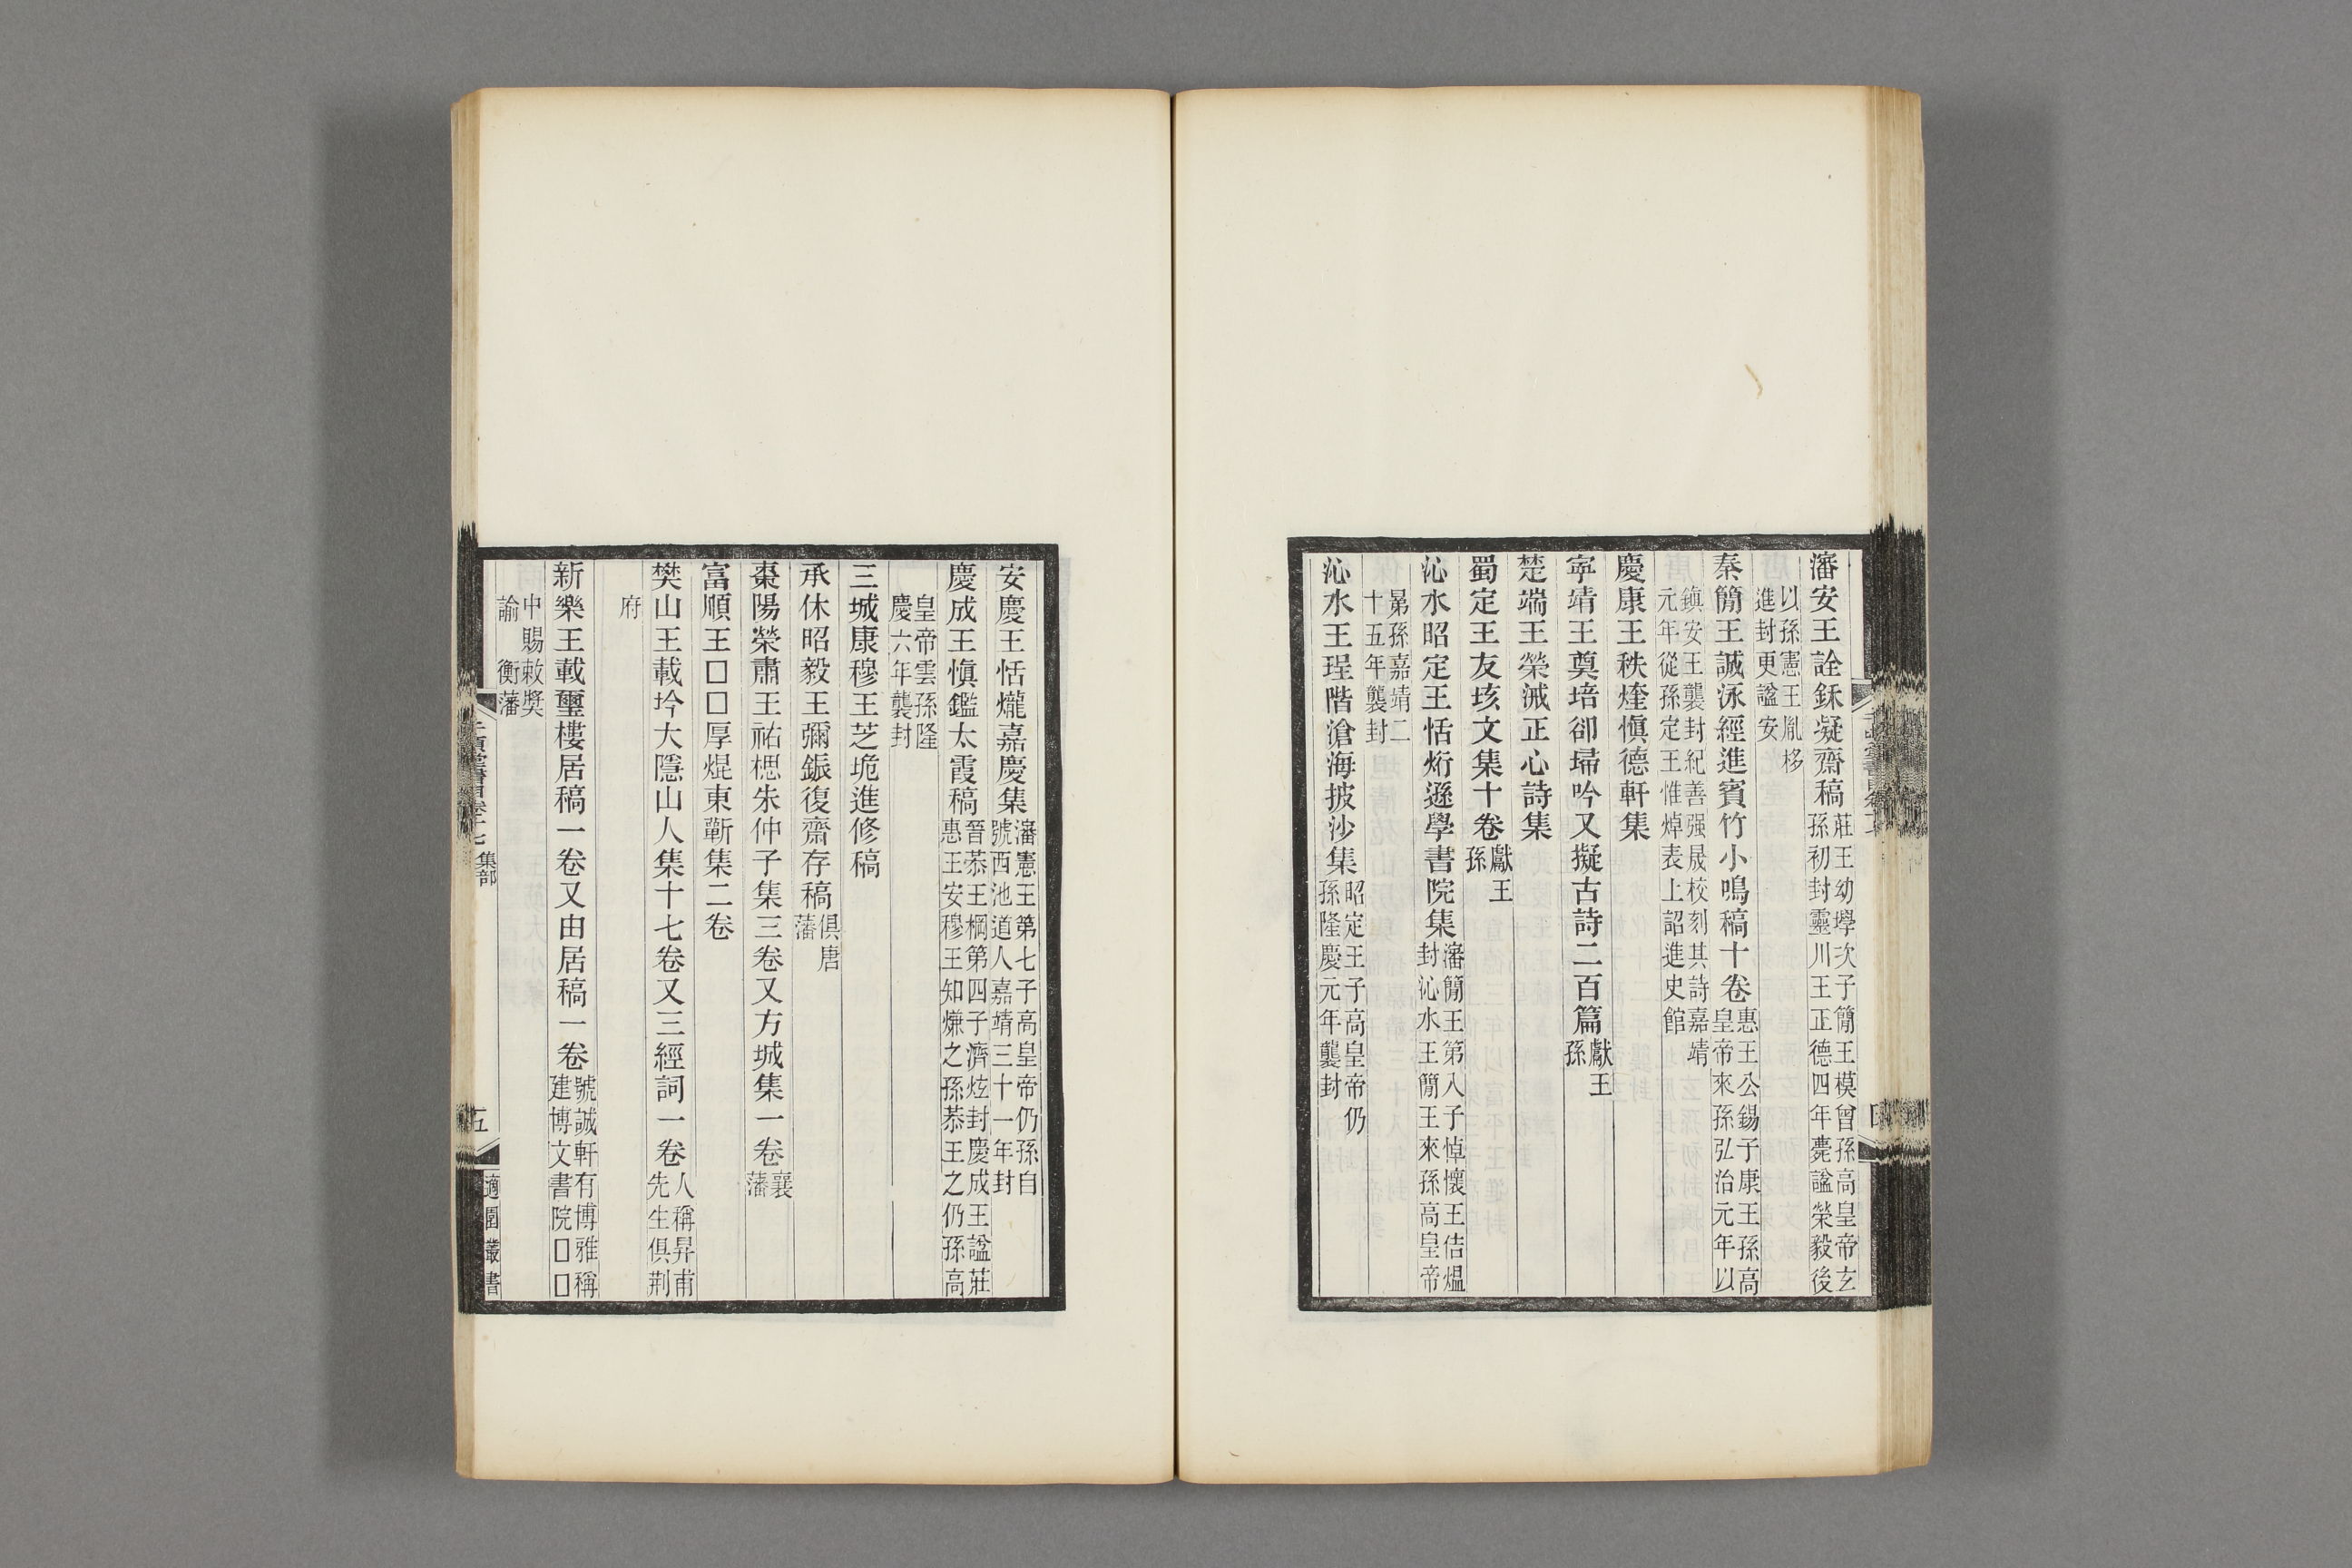 瀋安王詮鉌凝齋稿莊王幼㙾次子簡王模曾孫高皇帝玄
孫初封靈川王正德四年薨諡榮毅後
以孫憲王胤栘
進封更諡安
秦簡王誠泳經進賓竹小鳴稿十卷惠王公錫子康王孫高
皇帝來孫弘治元年以
鎮安王襲封紀善强晟校刻其詩嘉靖
元年從孫定王惟焯表上詔進史館
慶康王秩煃愼德軒集
寧靖王奠培卻埽吟又擬古詩二百篇獻王
孫
楚端王榮㳦正心詩集
蜀定王友垓文集十卷獻王
孫
沁水昭定王恬烆遜學書院集瀋簡王第八子悼懷王佶熅
封沁水王簡王來孫高皇帝
第孫嘉靖二
十五年襲封
沁水王珵階滄海披沙集昭定王子高皇帝仍
孫隆慶元年襲封
安慶王恬爖嘉慶集瀋憲王第七子高皇帝仍孫自
號西池道人嘉靖三十一年封
慶成王愼鑑太霞稿晉恭王棡第四子濟炫封慶成王諡莊
惠王安穆王知㷿之孫恭王之仍孫高
皇帝雲孫隆
慶六年襲封
三城康穆王芝垝進修稿
承休昭毅王彌鋠復齋存稿俱唐
藩
棗陽榮肅王祐楒朱仲子集三卷又方城集一卷襄
藩
富順王□□厚焜東蘄集二卷
樊山王載坅大隱山人集十七卷又三經詞一卷人稱昇甫
先生俱荆
府
新樂王載璽樓居稿一卷又由居稿一卷號誠軒有博雅稱
建博文書院□□
中賜敕奬
諭　衡藩
集部
五
適園叢書